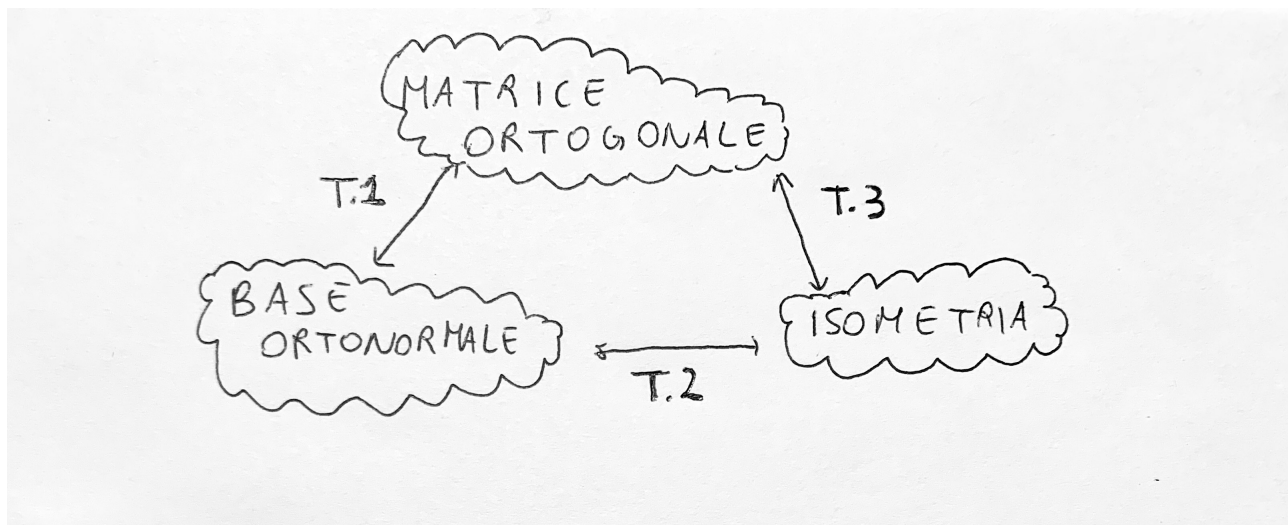 MATRICE
ORTOGONALE
T.1
T.3
BASE
ORTONORMALE
ISOMETRIA
T.2